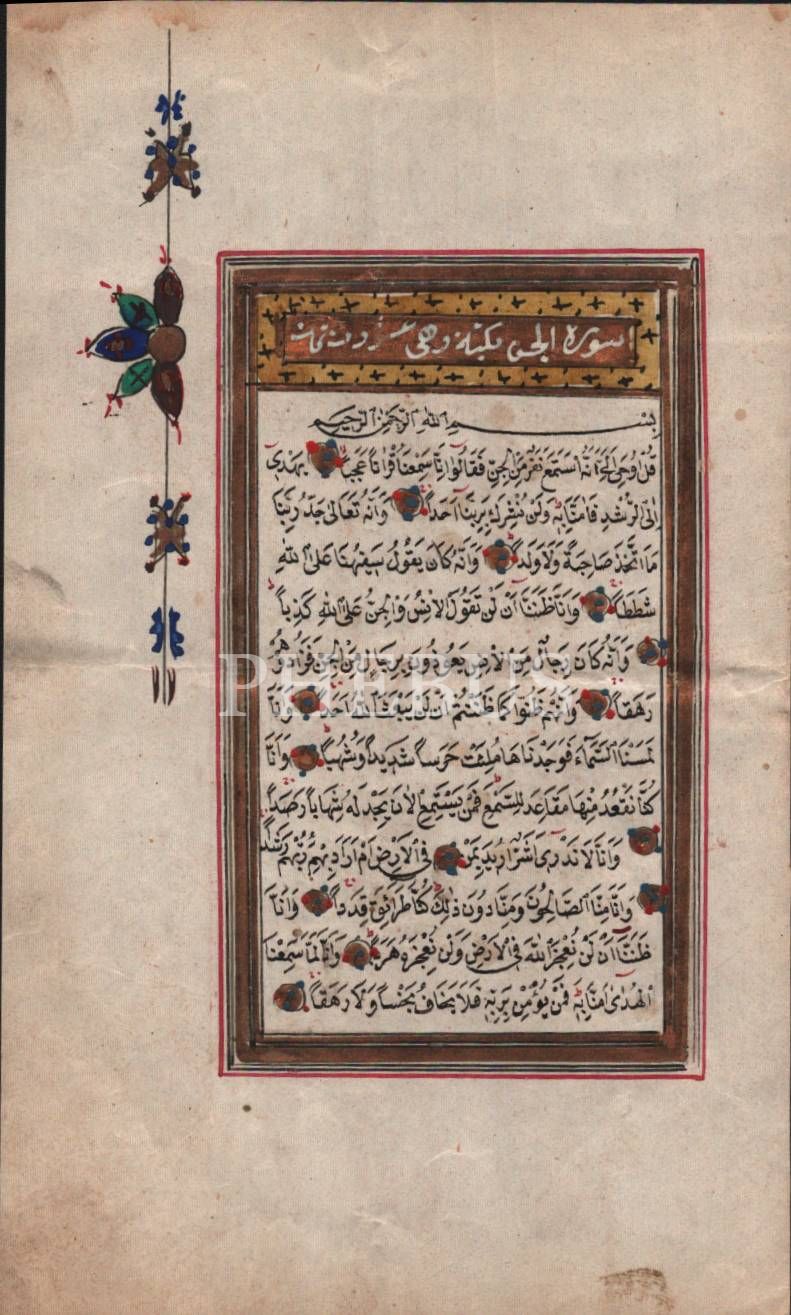 سورة الجن مكية وهي
بِسْمِ اللّٰهِ الرَّحْمٰنِ الرَّحِيمِ
قُلْ اُوحِيَ اِلَيَّ اَنَّهُ اسْتَمَعَ نَفَرٌ مِنَ الْجِنِّ فَقَالُوا اِنَّا سَمِعْنَا قُرْاٰنًا عَجَبًا يَهْدِي
اِلَى الرُّشْدِ فَاٰمَنَّا بِهِ وَلَنْ نُشْرِكَ بِرَبِّنَا اَحَدًا وَاَنَّهُ تَعَالٰى جَدُّ رَبِّنَا
مَا اتَّخَذَ صَاحِبَةً وَلَا وَلَدًا وَاَنَّهُ كَانَ يَقُولُ سَفِيهُنَا عَلَى اللّٰهِ
شَطَطًا وَاَنَّا ظَنَنَّا اَنْ لَنْ تَقُولَ الْاِنْسُ وَالْجِنُّ عَلَى اللّٰهِ كَذِبًا
وَاَنَّهُ كَانَ رِجَالٌ مِنَ الْاِنْسِ يَعُوذُونَ بِرِجَالٍ مِنَ الْجِنِّ فَزَادُوهُمْ
رَهَقًا وَاَنَّهُمْ ظَنُّوا كَمَا ظَنَنْتُمْ اَنْ لَنْ يَبْعَثَ اللّٰهُ اَحَدًا وَاَنَّا
لَمَسْنَا السَّمَاءَ فَوَجَدْنَاهَا مُلِئَتْ حَرَسًا شَدِيدًا وَشُهُبًا وَاَنَّا
كُنَّا نَقْعُدُ مِنْهَا مَقَاعِدَ لِلسَّمْعِ فَمَنْ يَسْتَمِعِ الْاٰنَ يَجِدْ لَهُ شِهَابًا رَصَدًا
وَاَنَّا لَا نَدْرِي اَشَرٌّ اُرِيدَ بِمَنْ فِي الْاَرْضِ اَمْ اَرَادَ بِهِمْ رَبُّهُمْ رَشَدًا
وَاَنَّا مِنَّا الصَّالِحُونَ وَمِنَّا دُونَ ذٰلِكَ كُنَّا طَرَائِقَ قِدَدًا وَاَنَّا
ظَنَنَّا اَنْ لَنْ نُعْجِزَ اللّٰهَ فِي الْاَرْضِ وَلَنْ نُعْجِزَهُ هَرَبًا وَاَنَّا لَمَّا سَمِعْنَا
الْهُدٰى اٰمَنَّا بِهِ فَمَنْ يُؤْمِنْ بِرَبِّهِ فَلَا يَخَافُ بَخْسًا وَلَا رَهَقًا